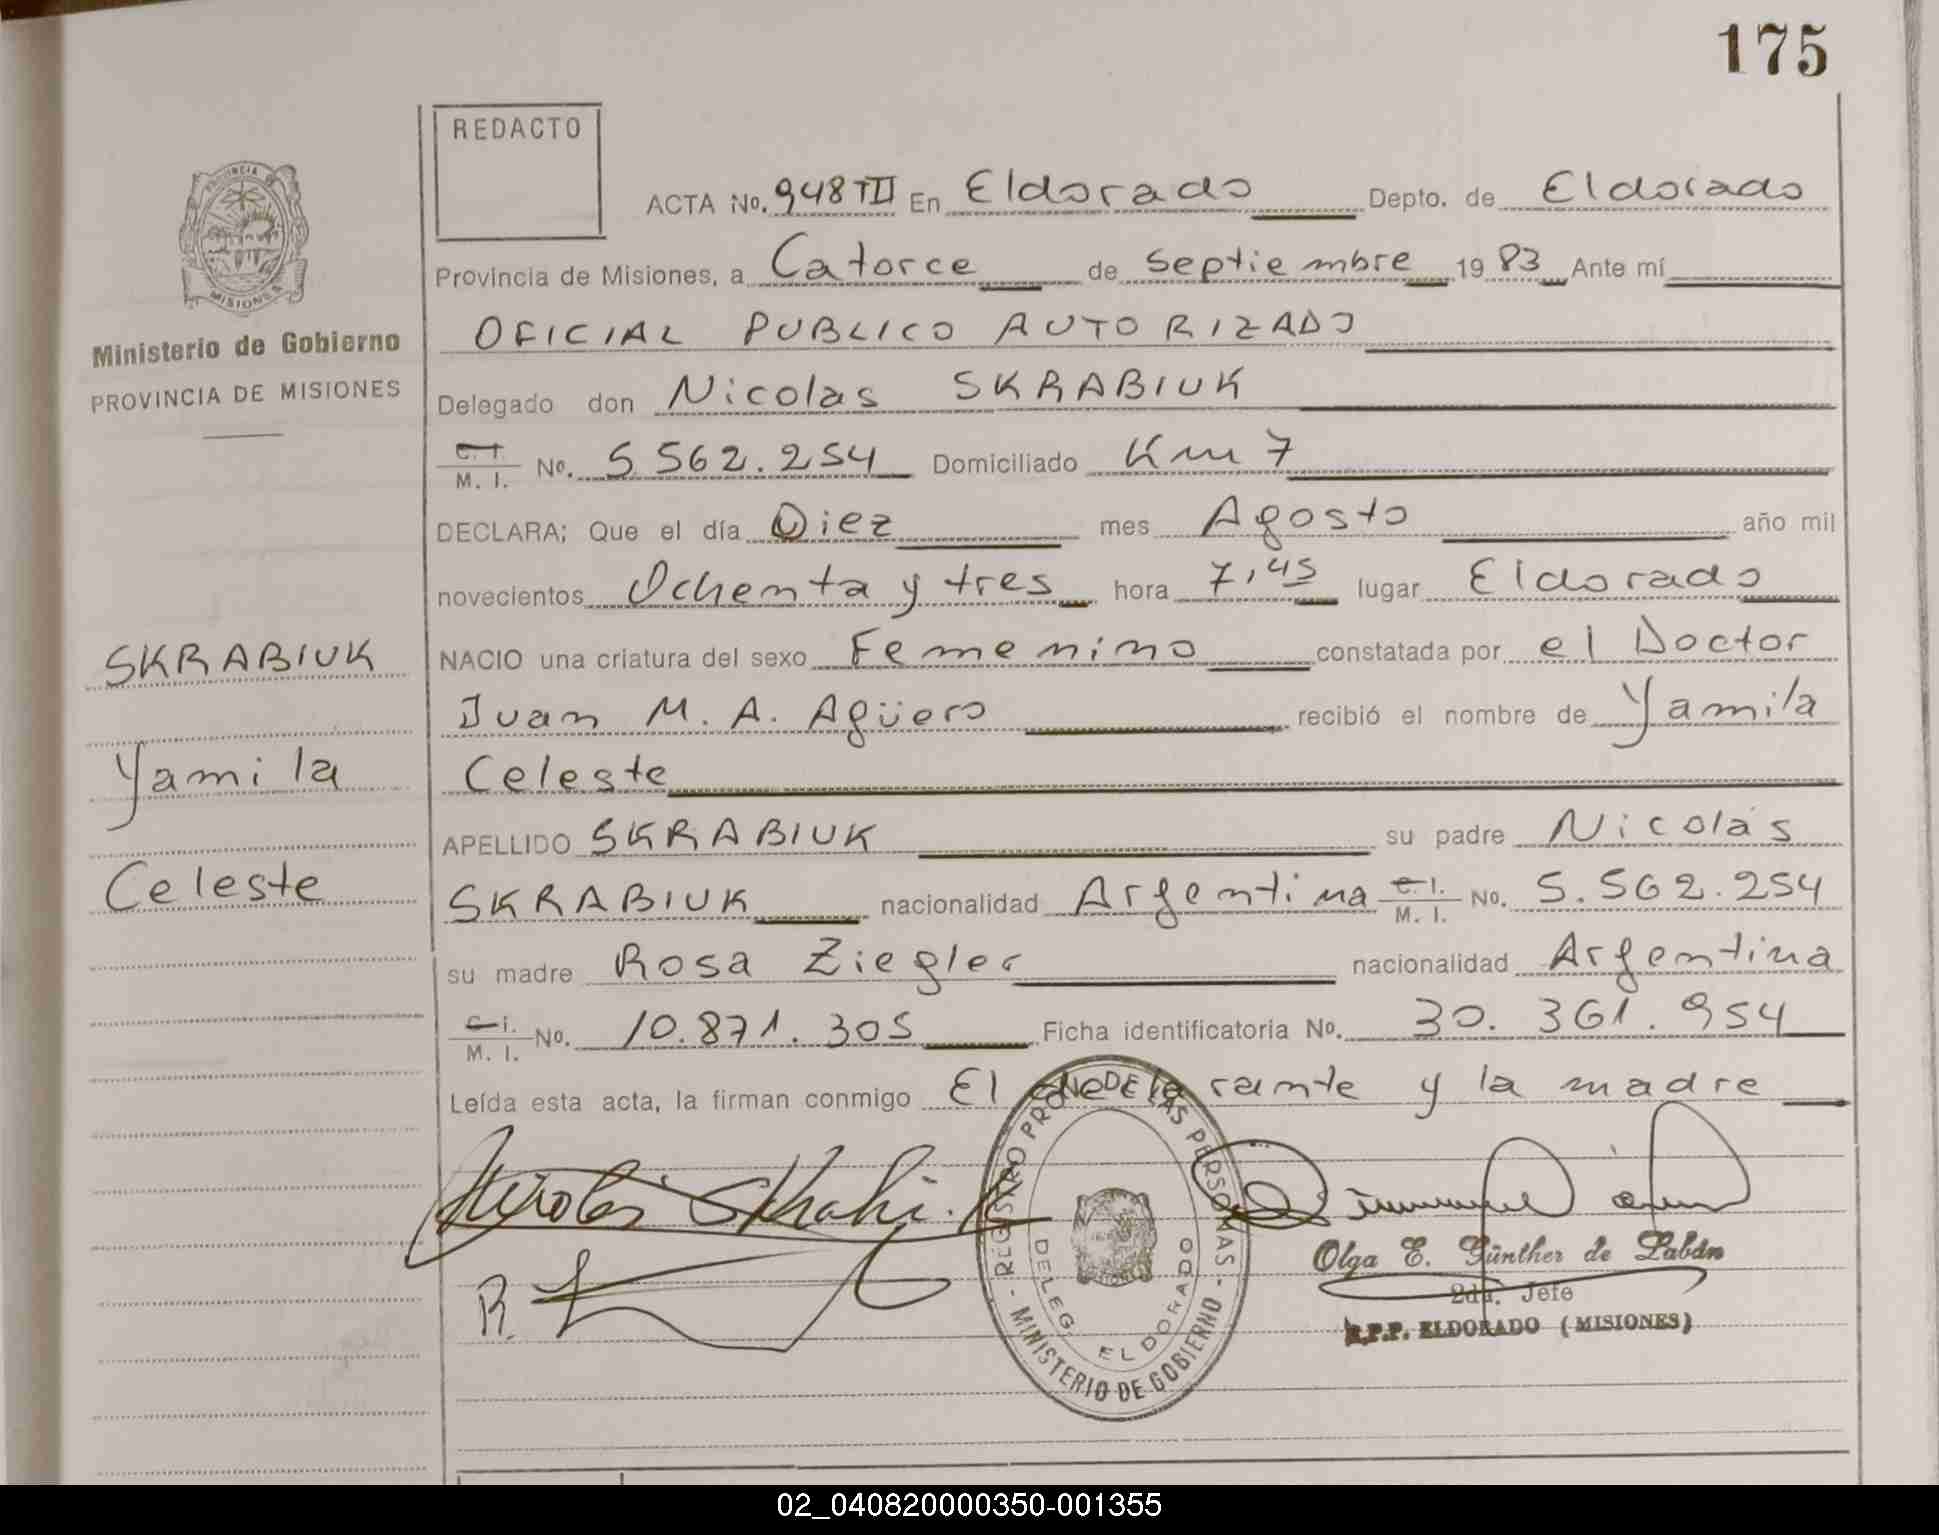 175
REDACTO
ACTA No. 948 TII En Eldorado Depto. de Eldorado
Provincia de Misiones, a Catorce de Septiembre 1983 Ante mí
OFICIAL PUBLICO AUTORIZADO
Ministerio de Gobierno
PROVINCIA DE MISIONES
Delegado don Nicolas SKRABIUK
C. I.
M. I. No. 5.562.254 Domiciliado Km 7
DECLARA; Que el día Diez mes Agosto año mil
novecientos Ochenta y tres hora 7,45 lugar Eldorado
SKRABIUK
NACIO una criatura del sexo Femenino constatada por el Doctor
Juan M. A. Agüero recibió el nombre de Yamila
Yamila
Celeste
APELLIDO SKRABIUK su padre Nicolás
Celeste
SKRABIUK nacionalidad Argentina C. I. M. I. No. 5.562.254
su madre Rosa Ziegler nacionalidad Argentina
C. I.
M. I. No. 10.871.305 Ficha identificatoria No. 30.361.954
Leída esta acta, la firman conmigo El declarante y la madre
REGISTRO PROV. DE LAS PERSONAS - MINISTERIO DE GOBIERNO -
DELEG. ELDORADO
Olga E. Günther de Labán
2da. Jefe
R.P.P. ELDORADO (MISIONES)
02_040820000350-001355